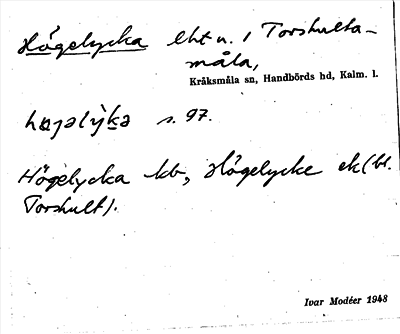 Högelycka lht u. 1 Torshulta-
måla,
Kråksmåla sn, Handbörds hd, Kalm. l.
høgəlỳkə s. 97.
Högelycka kb, Högelycke ek (bl.
Torshult).
Ivar Modéer 1948